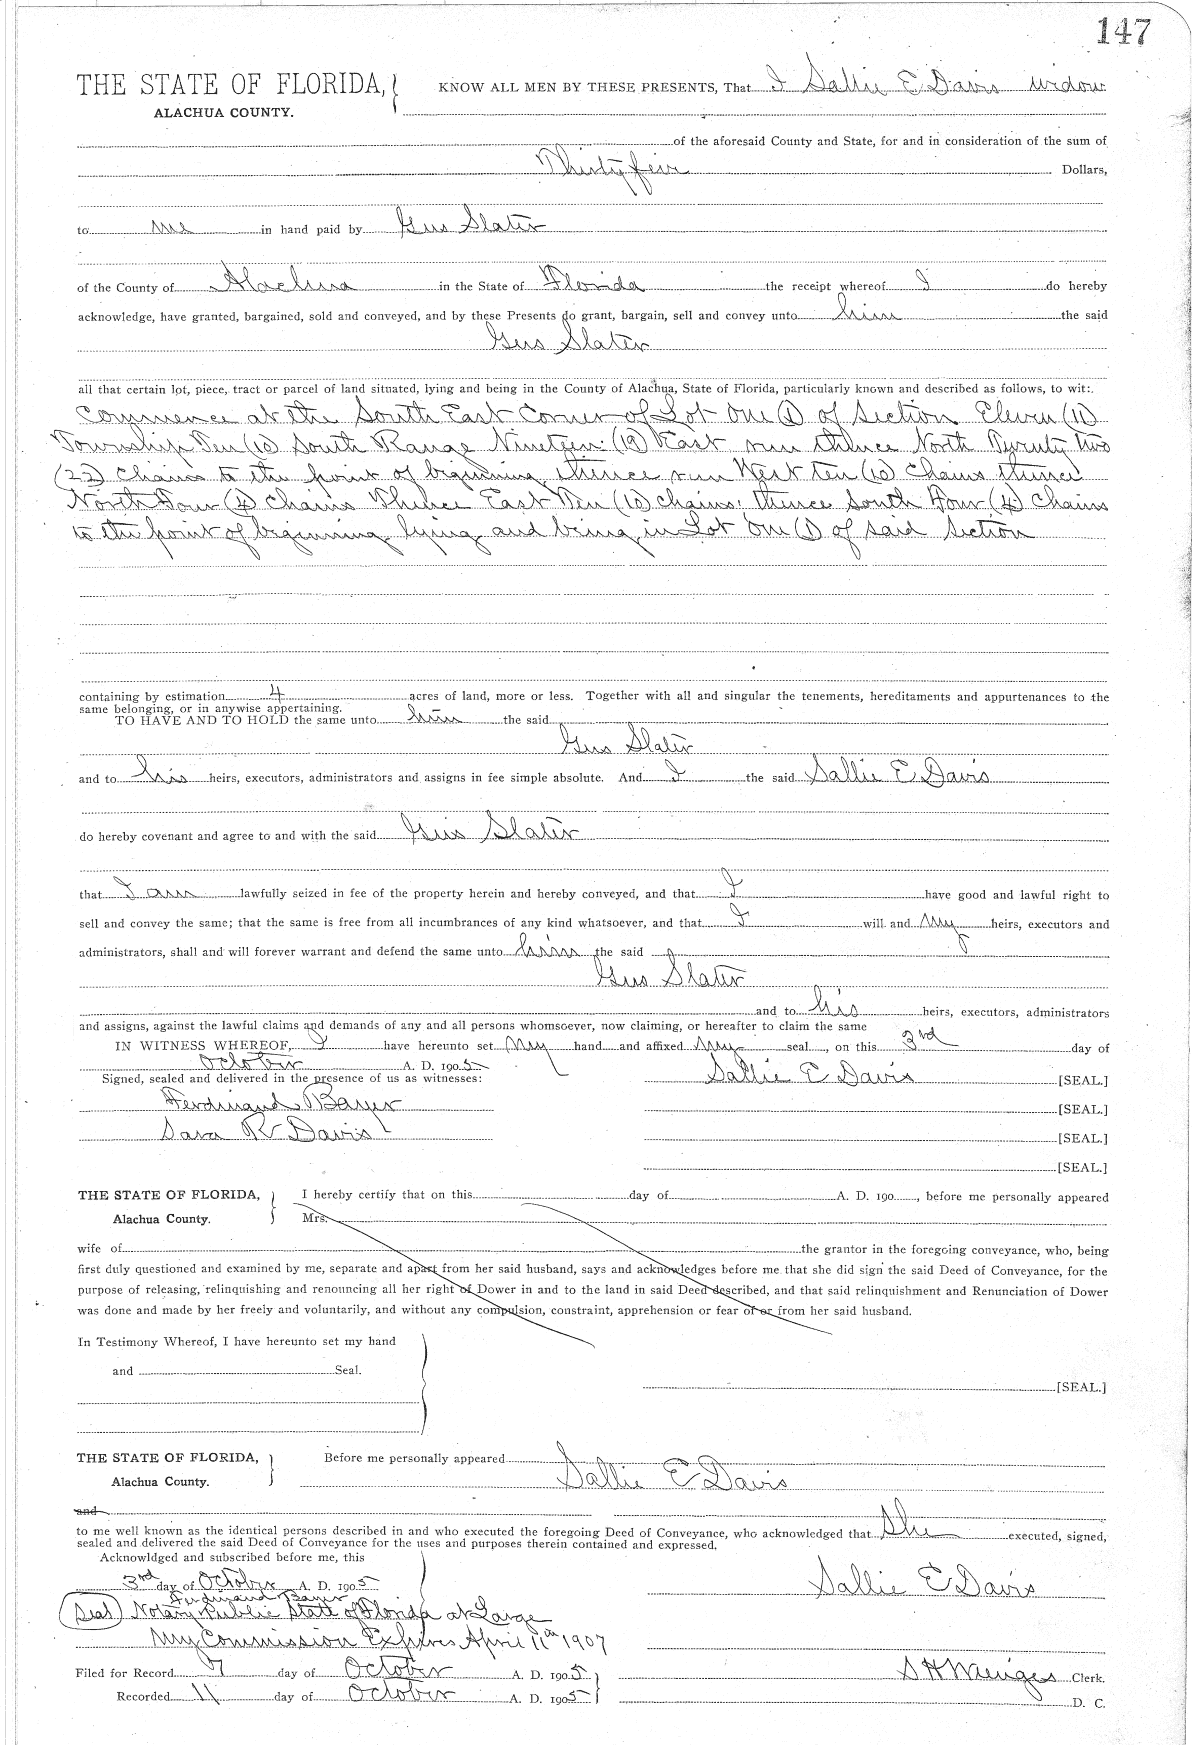 147
THE STATE OF FLORIDA, KNOW ALL MEN BY THESE PRESENTS, That I Sallie E Davis widow
ALACHUA COUNTY.
of the aforesaid County and State, for and in consideration of the sum of
Thirty five Dollars,
to me in hand paid by Gus Slater
of the County of Alachua in the State of Florida the receipt whereof I do hereby
acknowledge, have granted, bargained, sold and conveyed, and by these Presents do grant, bargain, sell and convey unto him the said
Gus Slater
all that certain lot, piece, tract or parcel of land situated, lying and being in the County of Alachua, State of Florida, particularly known and described as follows, to wit:
Commence at the South East Corner of Lot One (1) of Section Eleven (11)
Township Ten (10) South Range Nineteen (19) East run thence North Twenty two
(22) Chains to the point of beginning thence run West ten (10) Chains thence
North Four (4) Chains Thence East Ten (10) Chains, thence South Four (4) Chains
to the point of beginning lying and being in Lot One (1) of said Section
containing by estimation 4 acres of land, more or less. Together with all and singular the tenements, hereditaments and appurtenances to the
same belonging, or in anywise appertaining.
TO HAVE AND TO HOLD the same unto him the said
Gus Slater
and to his heirs, executors, administrators and assigns in fee simple absolute. And I the said Sallie E Davis
do hereby covenant and agree to and with the said Gus Slater
that I am lawfully seized in fee of the property herein and hereby conveyed, and that I have good and lawful right to
sell and convey the same; that the same is free from all incumbrances of any kind whatsoever, and that I will and my heirs, executors and
administrators, shall and will forever warrant and defend the same unto him the said
Gus Slater
and to his heirs, executors, administrators
and assigns, against the lawful claims and demands of any and all persons whomsoever, now claiming, or hereafter to claim the same
IN WITNESS WHEREOF, I have hereunto set my hand and affixed my seal, on this 3rd day of
October A. D. 1905 Sallie E Davis [SEAL.]
Signed, sealed and delivered in the presence of us as witnesses:
Ferdinand Bayer [SEAL.]
Sara R Davis [SEAL.]
[SEAL.]
THE STATE OF FLORIDA, I hereby certify that on this day of A. D. 190, before me personally appeared
Alachua County. Mrs.
wife of the grantor in the foregoing conveyance, who, being
first duly questioned and examined by me, separate and apart from her said husband, says and acknowledges before me that she did sign the said Deed of Conveyance, for the
purpose of releasing, relinquishing and renouncing all her right of Dower in and to the land in said Deed described, and that said relinquishment and Renunciation of Dower
was done and made by her freely and voluntarily, and without any compulsion, constraint, apprehension or fear of or from her said husband.
In Testimony Whereof, I have hereunto set my hand
and Seal.
[SEAL.]
THE STATE OF FLORIDA, Before me personally appeared
Alachua County. Sallie E Davis
and
to me well known as the identical persons described in and who executed the foregoing Deed of Conveyance, who acknowledged that She executed, signed,
sealed and delivered the said Deed of Conveyance for the uses and purposes therein contained and expressed.
Acknowldged and subscribed before me, this
3rd day of October A. D. 1905 Sallie E Davis
Ferdinand Bayer
(Seal) Notary Public State of Florida at Large
My Commission Expires April 11th 1907
Filed for Record 7 day of October A. D. 1905 S H Wienges Clerk.
Recorded 11 day of October A. D. 1905 D. C.